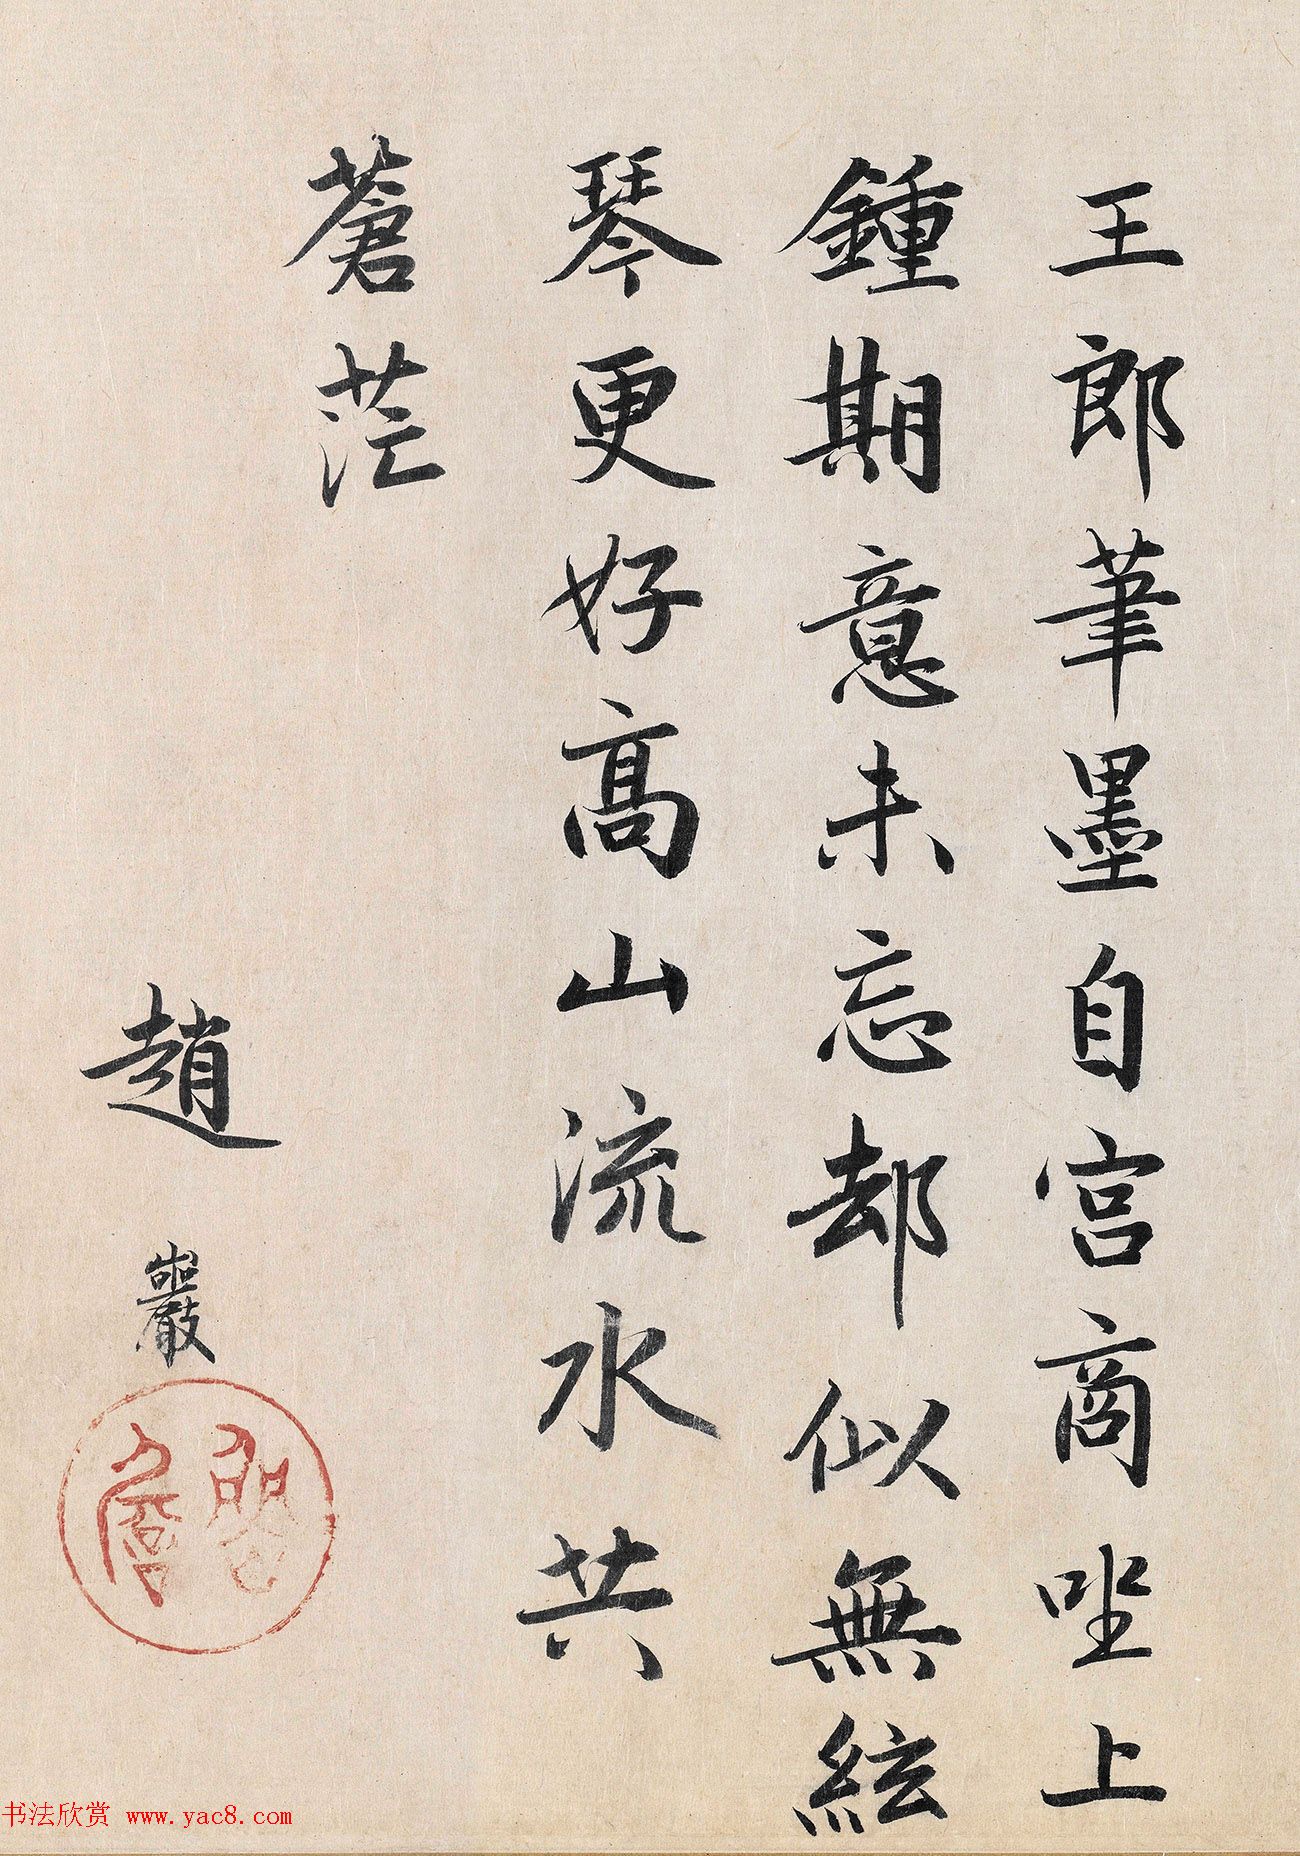 王郎筆墨自宮商坐上
鍾期意未忘却似無絃
琴更好高山流水共
蒼茫
趙巖
书法欣赏 www.yac8.com